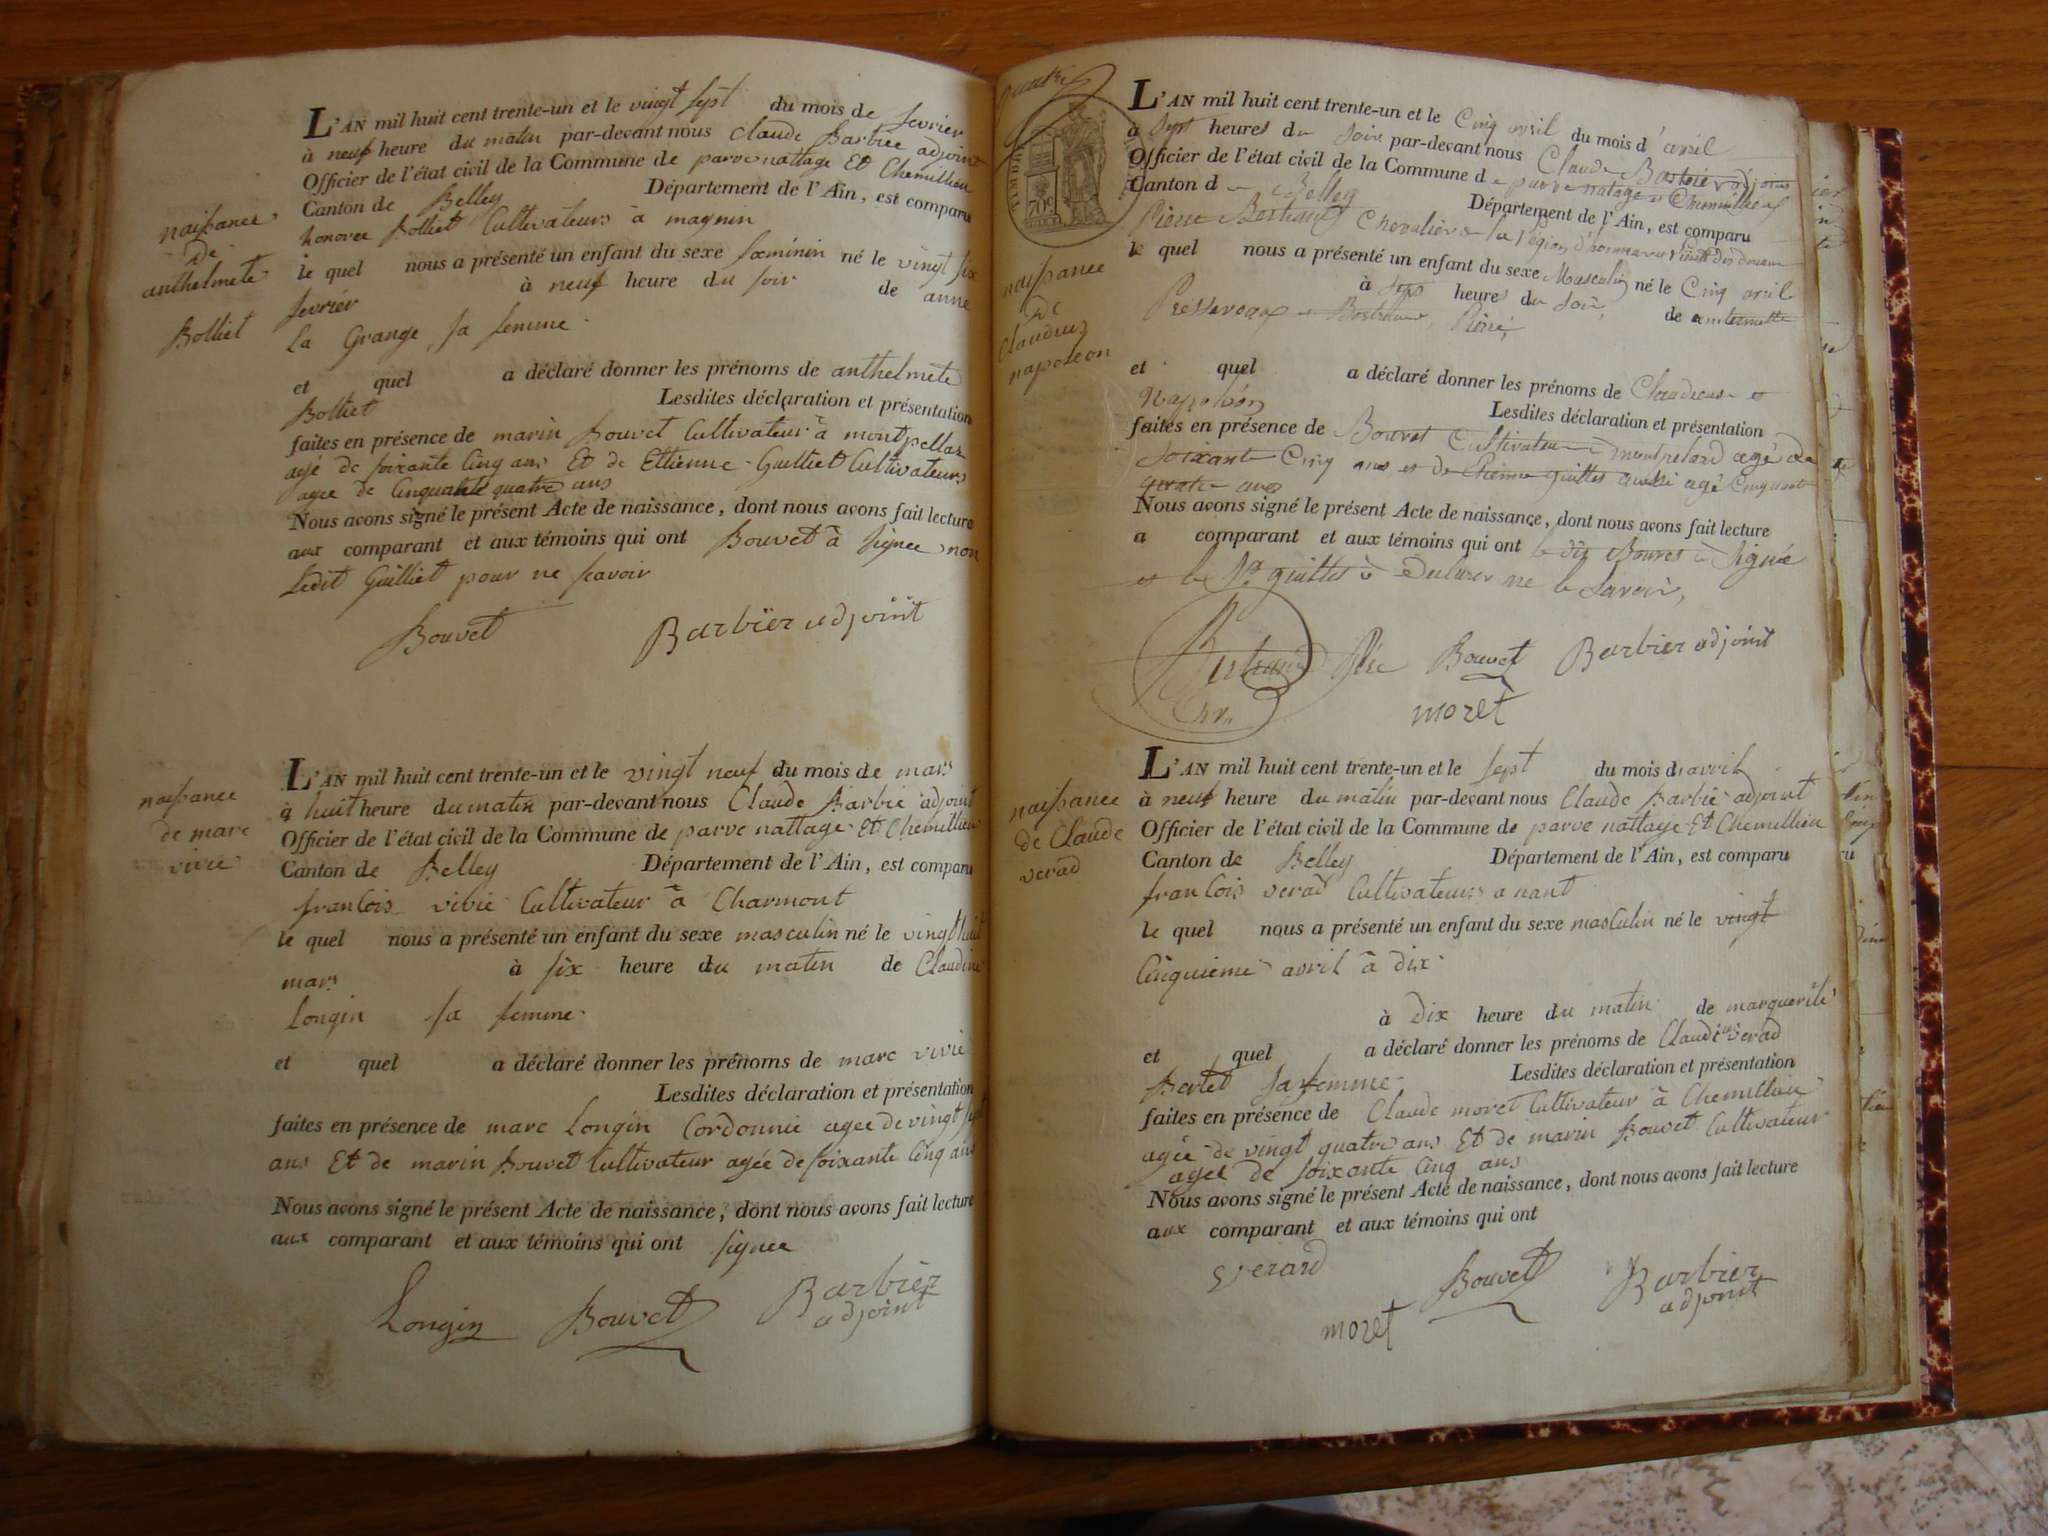 naissance
de
anthelmete
Bolliet
L'AN mil huit cent trente-un et le vingt sept du mois de fevrier
à neuf heure du matin par-devant nous Claude Barbiee adjoint
Officier de l'état civil de la Commune de parve nattage Et Chemillieu
Canton de Belley Département de l'Ain, est comparu
honoree Bolliet Cultivateurs à magnin
le quel nous a présenté un enfant du sexe fœminin né le vingt six
fevriér à neuf heure du soir de anne
La Grange, sa femme
et quel a déclaré donner les prénoms de anthelmete
Bolliet Lesdites déclaration et présentation
faites en présence de marin Bouvet Cultivateur à montpellaz
agé de soixante Cinq ans Et de Ettienne Guilliet Cultivateurs
agee de Cinquante quatre ans
Nous avons signé le présent Acte de naissance, dont nous avons fait lecture
aux comparant et aux témoins qui ont Bouvet à signee non
Ledit Guilliet pour ne scavoir
Bouvet Barbier adjoint
naissance
de marc
vivie
L'AN mil huit cent trente-un et le vingt neuf du mois de mars
à huit heure du matin par-devant nous Claude Barbie adjoint
Officier de l'état civil de la Commune de parve nattage Et Chemillieu
Canton de Belley Département de l'Ain, est comparu
francois vivie Cultivateur à Charmont
le quel nous a présenté un enfant du sexe masculin né le vingt huit
mars à six heure du matin de Claudine
Longin sa femme
et quel a déclaré donner les prénoms de marc vivie
Lesdites déclaration et présentation
faites en présence de marc Longin Cordonnie agee de vingt sept
ans Et de marin Bouvet Cultivateur agée de soixante Cinq ans
Nous avons signé le présent Acte de naissance, dont nous avons fait lecture
aux comparant et aux témoins qui ont signee
Longin Bouvet Barbier
adjoint
naissance
de
Claudius
napoleon
L'AN mil huit cent trente-un et le Cinq avril du mois d'avril
à Sept heures du Soir par-devant nous Claude Barbier adjoint
Officier de l'état civil de la Commune de parve natage et Chemillieu
Canton de Belley Département de l'Ain, est comparu
Pierre Bertrand Chevalier de la légion d'honneur
le quel nous a présenté un enfant du sexe Masculin né le Cinq avril
à Sept heures du Soir, de
Bertrand, Pierre,
et quel a déclaré donner les prénoms de Claudius et
Napoléon Lesdites déclaration et présentation
faites en présence de Bouvet Cultivateur à montpelard agé de
Soixante Cinq ans et de Etienne guillet aussi agé Cinquante
quatre ans
Nous avons signé le présent Acte de naissance, dont nous avons fait lecture
a comparant et aux témoins qui ont le dit Bouvet à Signé
et le Sr guillet à Déclarer ne le Savoir,
Bertrand Père Bouvet Barbier adjoint
Chr. moret
naissance
de Claude
verad
L'AN mil huit cent trente-un et le sept du mois d'avril
à neuf heure du matin par-devant nous Claude Barbie adjoint
Officier de l'état civil de la Commune de parve nattage Et Chemillieu
Canton de Belley Département de l'Ain, est comparu
francois verad Cultivateurs a nant
le quel nous a présenté un enfant du sexe masculin né le vingt
Cinquieme avril à dix
à dix heure du matin de marguerite
et quel a déclaré donner les prénoms de Claudius verad
Bertet sa femme Lesdites déclaration et présentation
faites en présence de Claude moret Cultivateur à Chemillieu
agée de vingt quatre ans Et de marin Bouvet Cultivateur
agee de soixante Cinq ans
Nous avons signé le présent Acte de naissance, dont nous avons fait lecture
aux comparant et aux témoins qui ont
verard Bouvet Barbier
moret adjoint